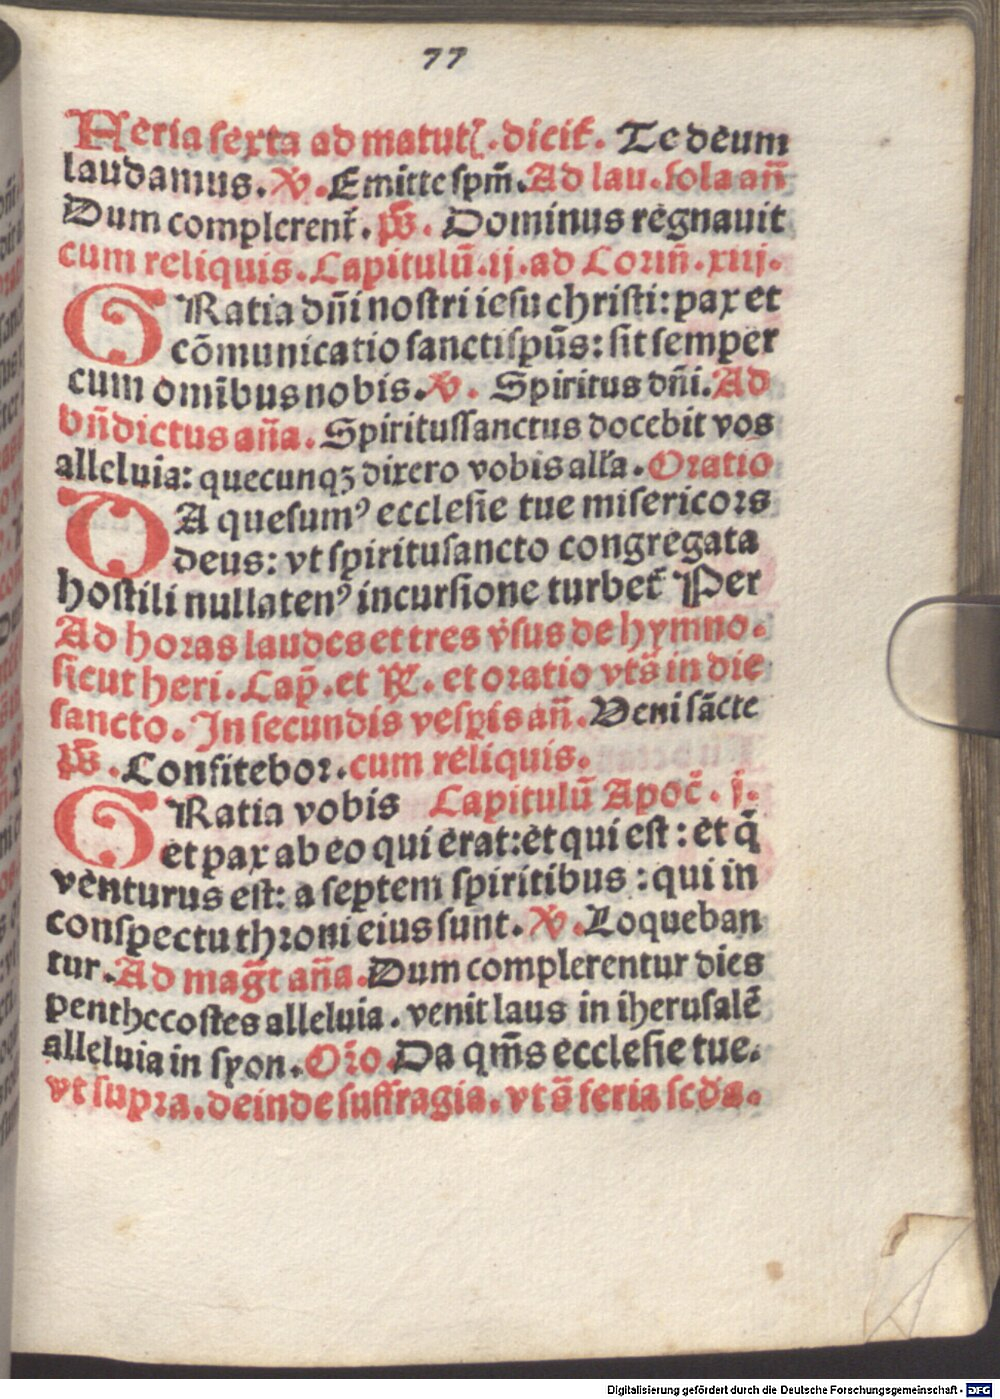 77
Feria sexta ad matutꝭ. dicit᷑. Te deum
laudamus. ꝟ. Emitte spm̄. Ad lau. sola an̄
Dum complerent᷑. p̄s. Dominus regnauit
cum reliquis. Capitulū. ij. ad Corin̄. xiij.
GRatia dn̄i nostri iesu christi: pax et
cōmunicatio sancti spūs: sit semper
cum omībus nobis. ꝟ. Spiritus dn̄i. Ad
bn̄dictus an̄a. Spiritussanctus docebit vos
alleluia: quecunqꝫ dixero vobis all'a. Oratio
DA quesumꝰ ecclesie tue misericors
deus: vt spiritusancto congregata
hostili nullatenꝰ incursione turbet᷑ Per
Ad horas laudes et tres v̓sus de hymno.
sicut heri. Cap̄. et ℟. et oratio vts̄ in die
sancto. In secundis vesꝑis an̄. Veni sācte
p̄s. Confitebor. cum reliquis.
GRatia vobis Capitulū Apoc̄. j.
et pax ab eo qui erat: et qui est: et q̄
venturus est: a septem spiritibus: qui in
conspectu throni eius sunt. ꝟ. Loqueban
tur. Ad maḡt an̄a. Dum complerentur dies
penthecostes alleluia. venit laus in iherusalē
alleluia in syon. Or̄o. Da qm̄s ecclesie tue.
vt supra. deinde suffragia. vts̄ feria scd̄a.
Digitalisierung gefördert durch die Deutsche Forschungsgemeinschaft - DFG